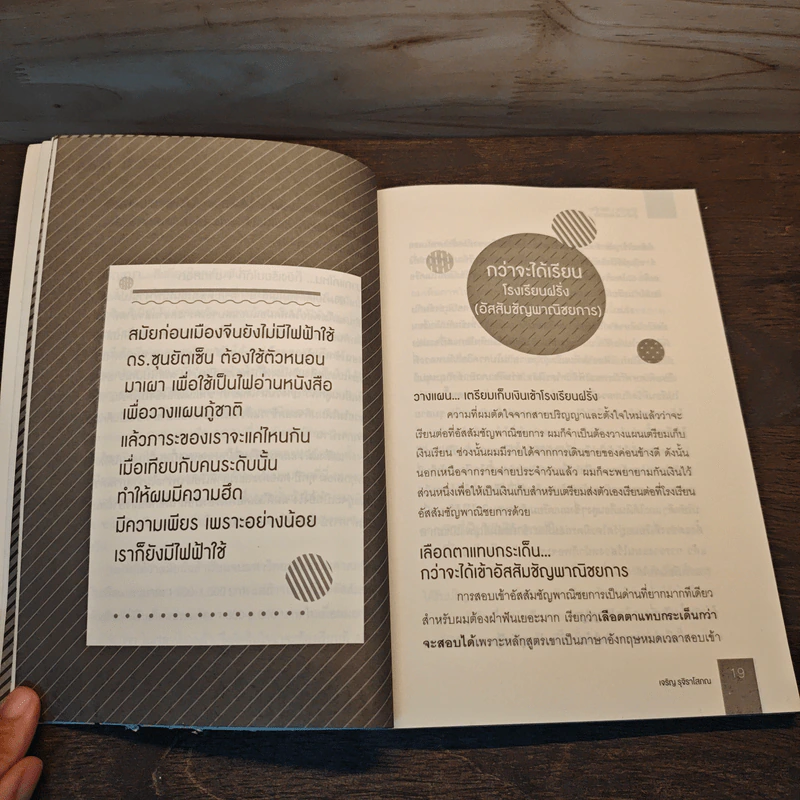 สมัยก่อนเมืองจีนยังไม่มีไฟฟ้าใช้
ดร.ซุนยัตเซ็น ต้องใช้ตัวหนอน
มาเผา เพื่อใช้เป็นไฟอ่านหนังสือ
เพื่อวางแผนกู้ชาติ
แล้วภาระของเราจะแค่ไหนกัน
เมื่อเทียบกับคนระดับนั้น
ทำให้ผมมีความฮึด
มีความเพียร เพราะอย่างน้อย
เราก็ยังมีไฟฟ้าใช้
กว่าจะได้เรียน
โรงเรียนฝรั่ง
(อัสสัมชัญพาณิชยการ)
วางแผน... เตรียมเก็บเงินเข้าโรงเรียนฝรั่ง
ความที่ผมตัดใจจากสายปริญญาและตั้งใจใหม่แล้วว่าจะ
เรียนต่อที่อัสสัมชัญพาณิชยการ ผมก็จำเป็นต้องวางแผนเตรียมเก็บ
เงินเรียน ช่วงนั้นผมมีรายได้จากการเดินขายของค่อนข้างดี ดังนั้น
นอกเหนือจากรายจ่ายประจำวันแล้ว ผมก็จะพยายามกันเงินไว้
ส่วนหนึ่งเพื่อให้เป็นเงินเก็บสำหรับเตรียมส่งตัวเองเรียนต่อที่โรงเรียน
อัสสัมชัญพาณิชยการด้วย
เลือดตาแทบกระเด็น...
กว่าจะได้เข้าอัสสัมชัญพาณิชยการ
การสอบเข้าอัสสัมชัญพาณิชยการเป็นด่านที่ยากมากทีเดียว
สำหรับผมต้องฝ่าฟันเยอะมาก เรียกว่าเลือดตาแทบกระเด็นกว่า
จะสอบได้เพราะหลักสูตรเขาเป็นภาษาอังกฤษหมดเวลาสอบเข้า
เจริญ รุจิราโสภณ
19